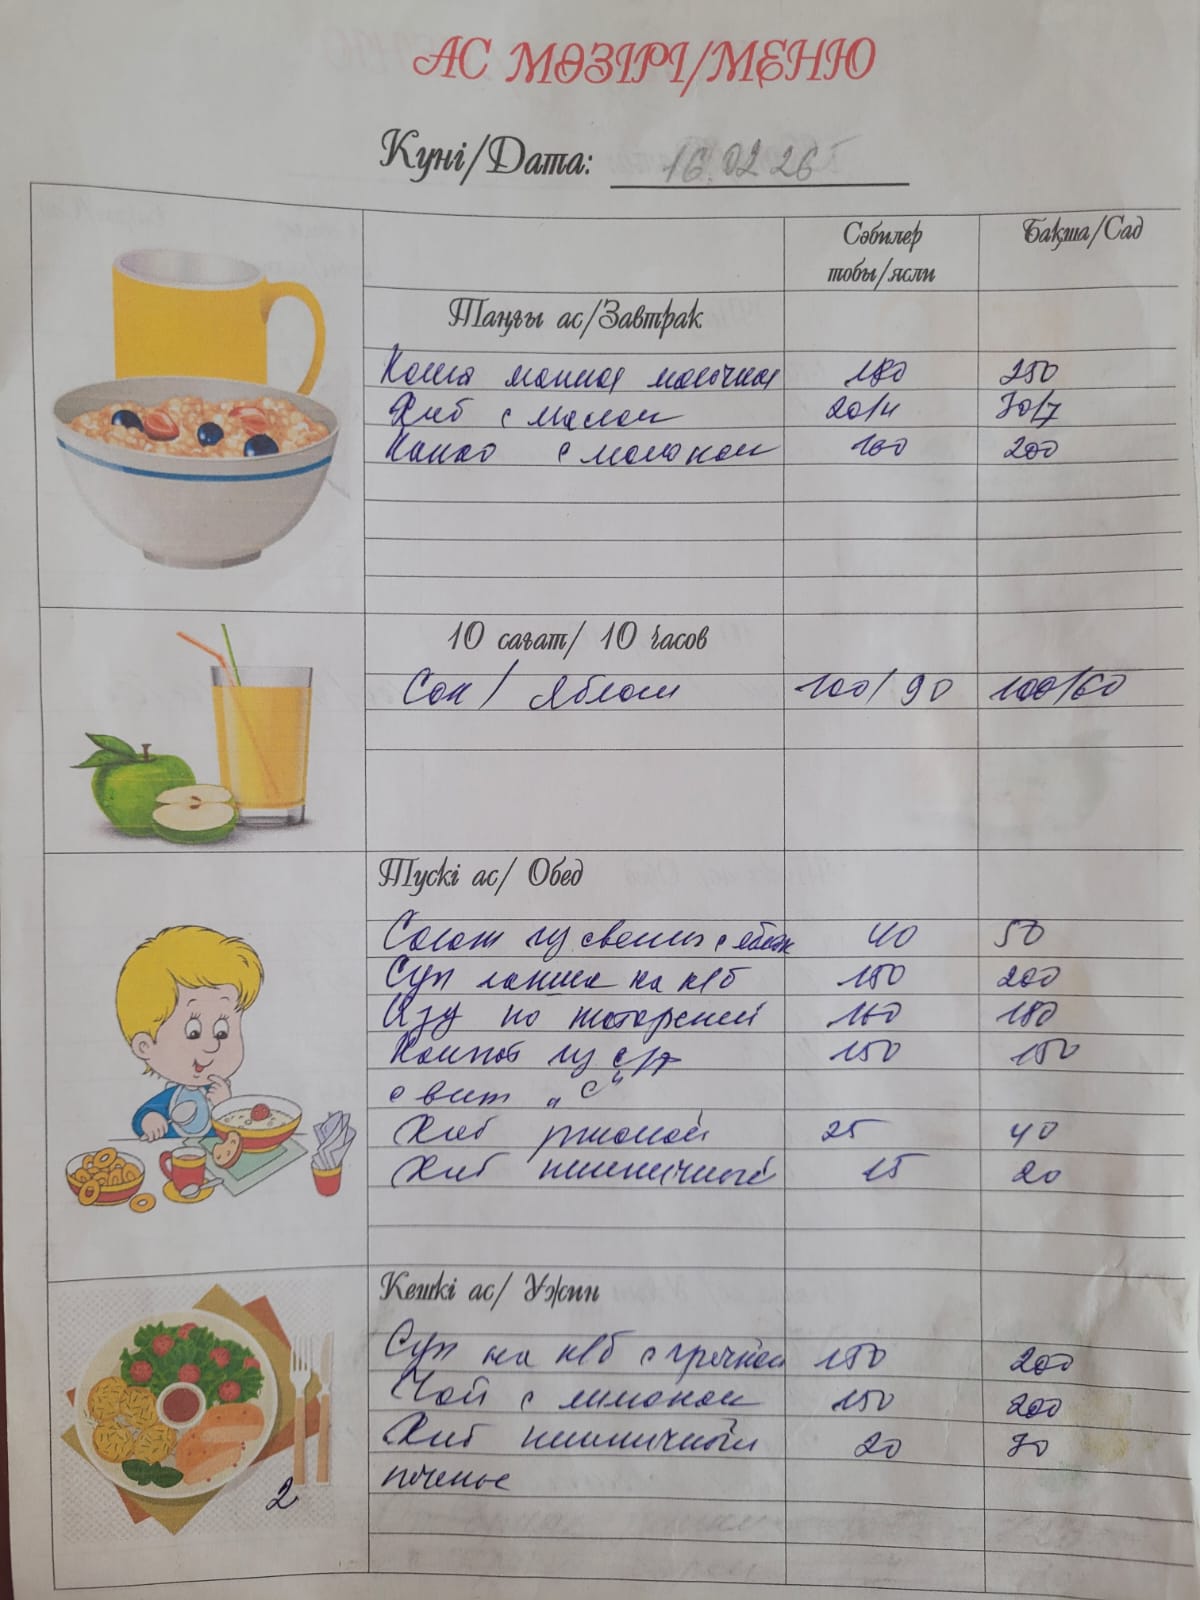 АС МӘЗІРІ/МЕНЮ
Күні/Дата: 16.02 26
Сәбилер тобы/ясли Бақша/Сад
Таңғы ас/Завтрак
Каша манная молочная 180 250
Хлеб с маслом 20/4 30/7
Какао с молоком 160 200
10 сағат/ 10 часов
Сок/ яблоки 100/90 100/60
Түскі ас/ Обед
Салат из свеклы с яблок 40 50
Суп лапша на к/б 150 200
Азу по татарский 160 180
Компот из с/ф 150 150
с вит „С"
Хлеб ржаной 25 40
Хлеб пшеничный 15 20
Кешкі ас/ Ужин
Суп на к/б с гречкой 150 200
Чай с лимоном 150 200
Хлеб пшеничный 20 30
печенье
2